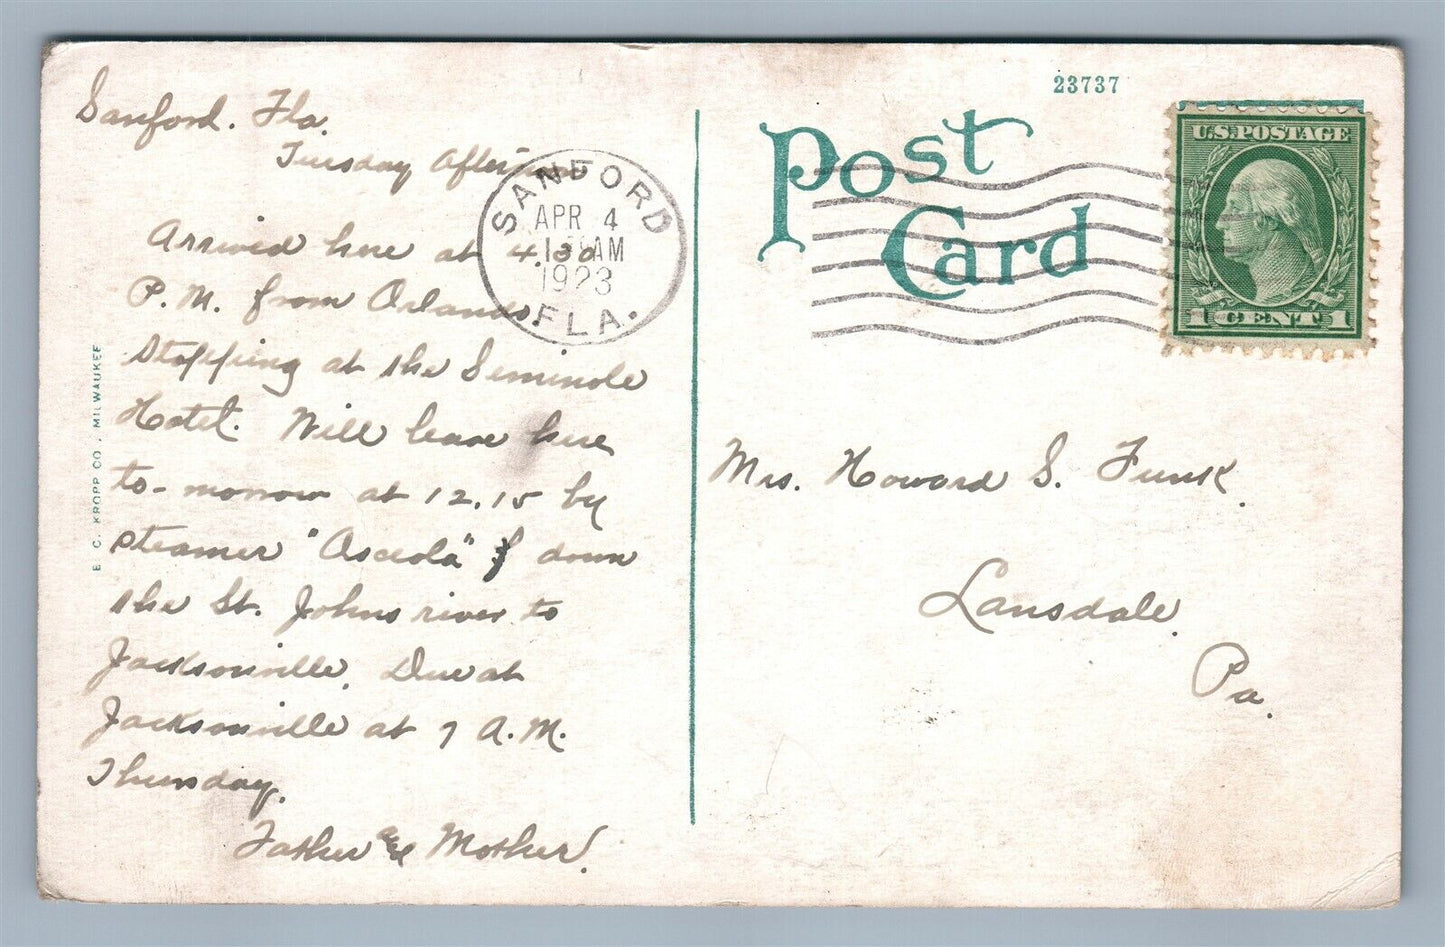 Sanford. Fla.
Tuesday Afternoon
Arrived here at 4.30
P.M. from Orlando.
Stopping at the Seminole
Hotel. Will leave here
to-morrow at 12.15 by
steamer "Osceola" down
the St. Johns river to
Jacksonville. Due at
Jacksonville at 7 A.M.
Thursday.
Father & Mother.
E. C. KROPP CO., MILWAUKEE
SANFORD
APR 4
AM
1923
FLA.
23737
Post
Card
U.S. POSTAGE
1 CENT 1
Mrs. Howard S. Funk.
Lansdale.
Pa.